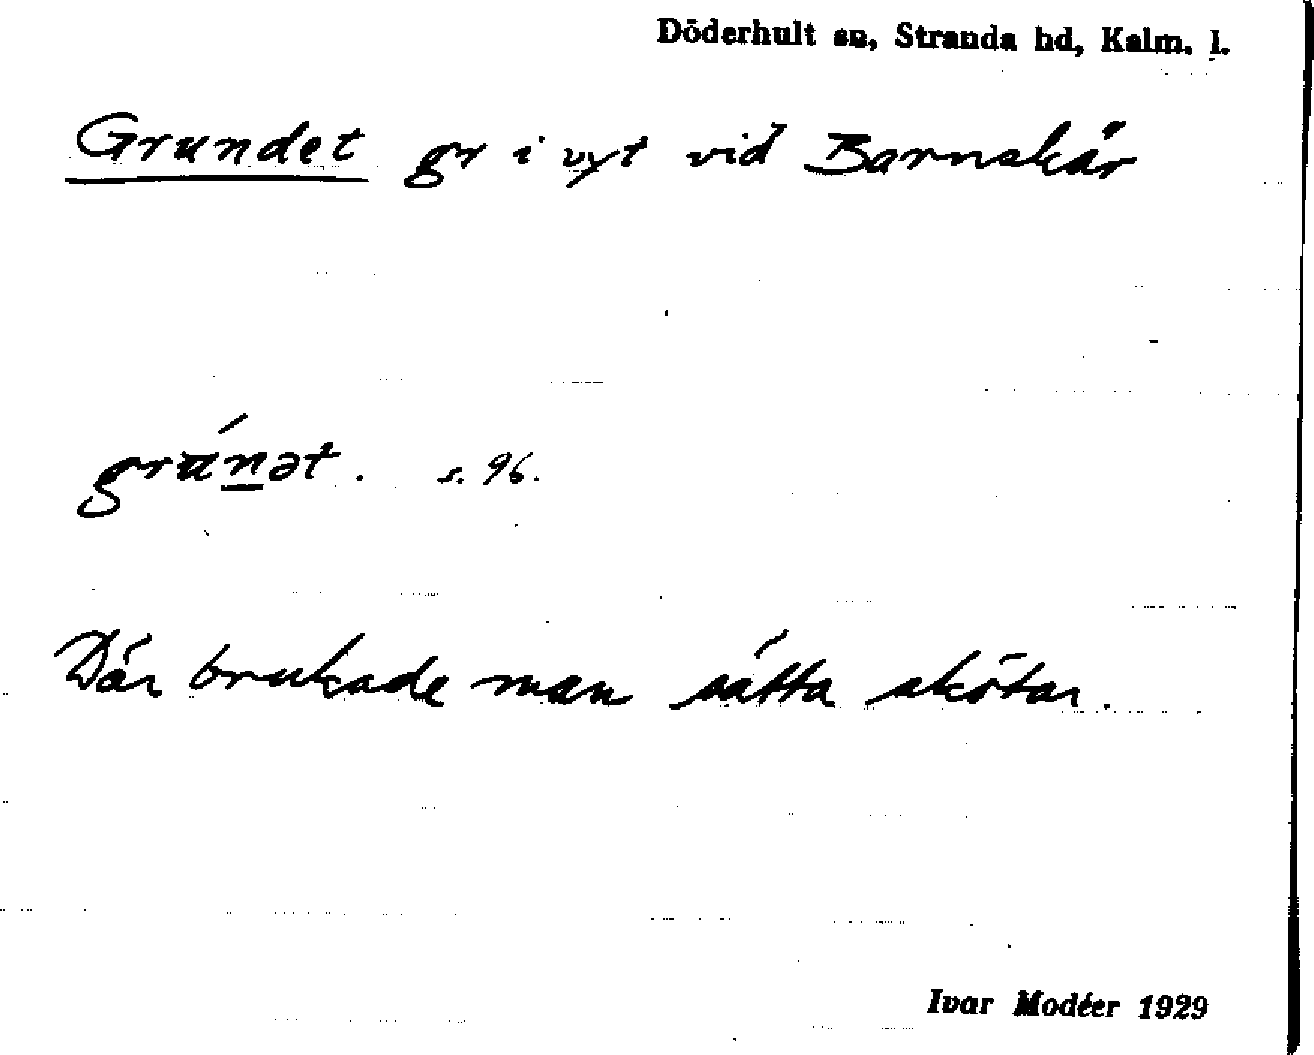 Döderhult sn, Stranda hd, Kalm. l.
Grundet gr i vyt vid Barnskär
grúnət. s. 96.
Där brukade man sätta skötar.
Ivar Modéer 1929